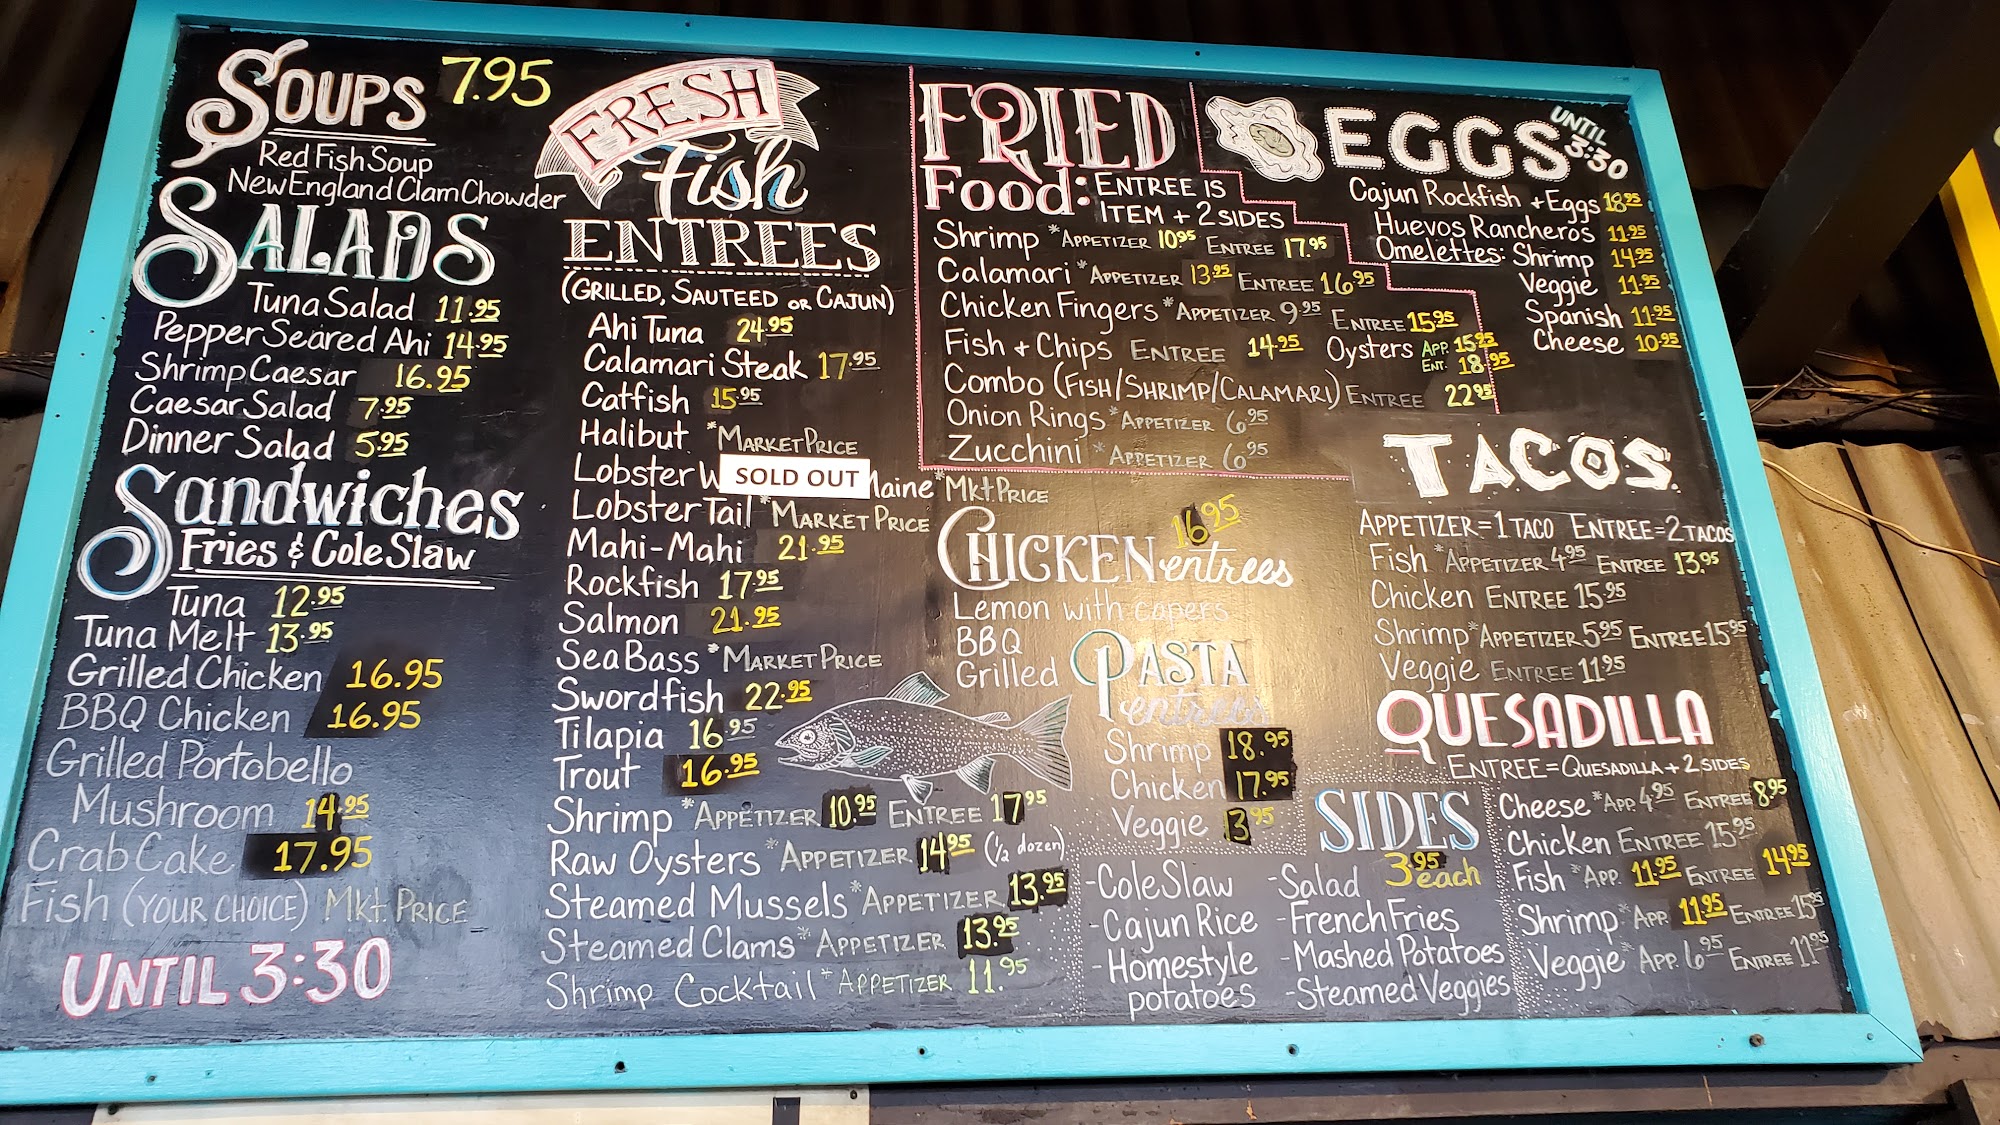 SOUPS 7.95
Red Fish Soup
New England Clam Chowder
SALADS
Tuna Salad 11.95
Pepper Seared Ahi 14.95
Shrimp Caesar 16.95
Caesar Salad 7.95
Dinner Salad 5.95
Sandwiches
Fries & Cole Slaw
Tuna 12.95
Tuna Melt 13.95
Grilled Chicken 16.95
BBQ Chicken 16.95
Grilled Portobello
Mushroom 14.95
Crab Cake 17.95
Fish (YOUR CHOICE) Mkt. PRICE
UNTIL 3:30
FRESH
Fish
ENTREES
(GRILLED, SAUTEED OR CAJUN)
Ahi Tuna 24.95
Calamari Steak 17.95
Catfish 15.95
Halibut *MARKET PRICE
Lobster W SOLD OUT Maine *MKt PRICE
Lobster Tail *MARKET PRICE
Mahi-Mahi 21.95
Rockfish 17.95
Salmon 21.95
Sea Bass *MARKET PRICE
Swordfish 22.95
Tilapia 16.95
Trout 16.95
Shrimp *APPETIZER 10.95 ENTREE 17.95
Raw Oysters *APPETIZER 14.95 (1/2 dozen)
Steamed Mussels *APPETIZER 13.95
Steamed Clams *APPETIZER 13.95
Shrimp Cocktail *APPETIZER 11.95
FRIED
Food: ENTREE IS
ITEM + 2 SIDES
Shrimp *APPETIZER 10.95 ENTREE 17.95
Calamari *APPETIZER 13.95 ENTREE 16.95
Chicken Fingers *APPETIZER 9.95 ENTREE 15.95
Fish + Chips ENTREE 14.95 Oysters APP. 15.95
ENT. 18.95
Combo (FISH/SHRIMP/CALAMARI) ENTREE 22.95
Onion Rings *APPETIZER 6.95
Zucchini *APPETIZER 6.95
CHICKEN entrees 16.95
Lemon with capers
BBQ
Grilled
PASTA
entrees
Shrimp 18.95
Chicken 17.95
Veggie 13.95
EGGS UNTIL 3:30
Cajun Rockfish + Eggs 18.95
Huevos Rancheros 11.95
Omelettes: Shrimp 14.95
Veggie 11.95
Spanish 11.95
Cheese 10.95
TACOS
APPETIZER=1 TACO ENTREE=2 TACOS
Fish *APPETIZER 4.95 ENTREE 13.95
Chicken ENTREE 15.95
Shrimp *APPETIZER 5.95 ENTREE 15.95
Veggie ENTREE 11.95
QUESADILLA
ENTREE=QUESADILLA + 2 SIDES
Cheese *APP. 4.95 ENTREE 8.95
Chicken ENTREE 15.95
Fish *APP. 11.95 ENTREE 14.95
Shrimp *APP. 11.95 ENTREE 15.95
Veggie *APP. 6.95 ENTREE 11.95
SIDES
3.95 each
-Cole Slaw
-Cajun Rice
-Homestyle
potatoes
-Salad
-French Fries
-Mashed Potatoes
-Steamed Veggies